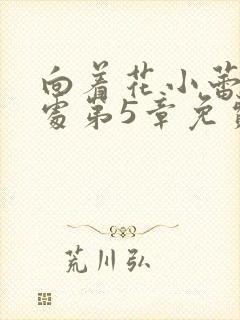 向着花小蕾
处第5章免费
荒川弘